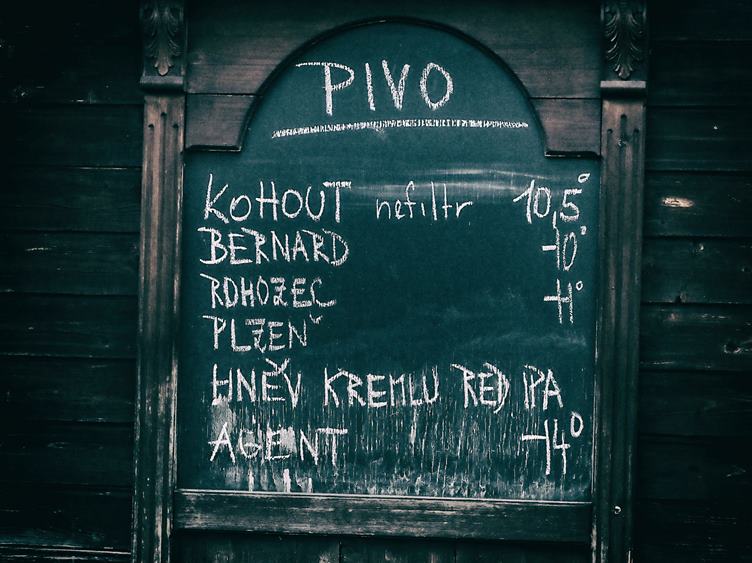 PIVO
KOHOUT nefiltr 10,5°
BERNARD 10°
ROHOZEC 11°
PLZEŇ
HNĚV KREMLU RED IPA
AGENT 14°